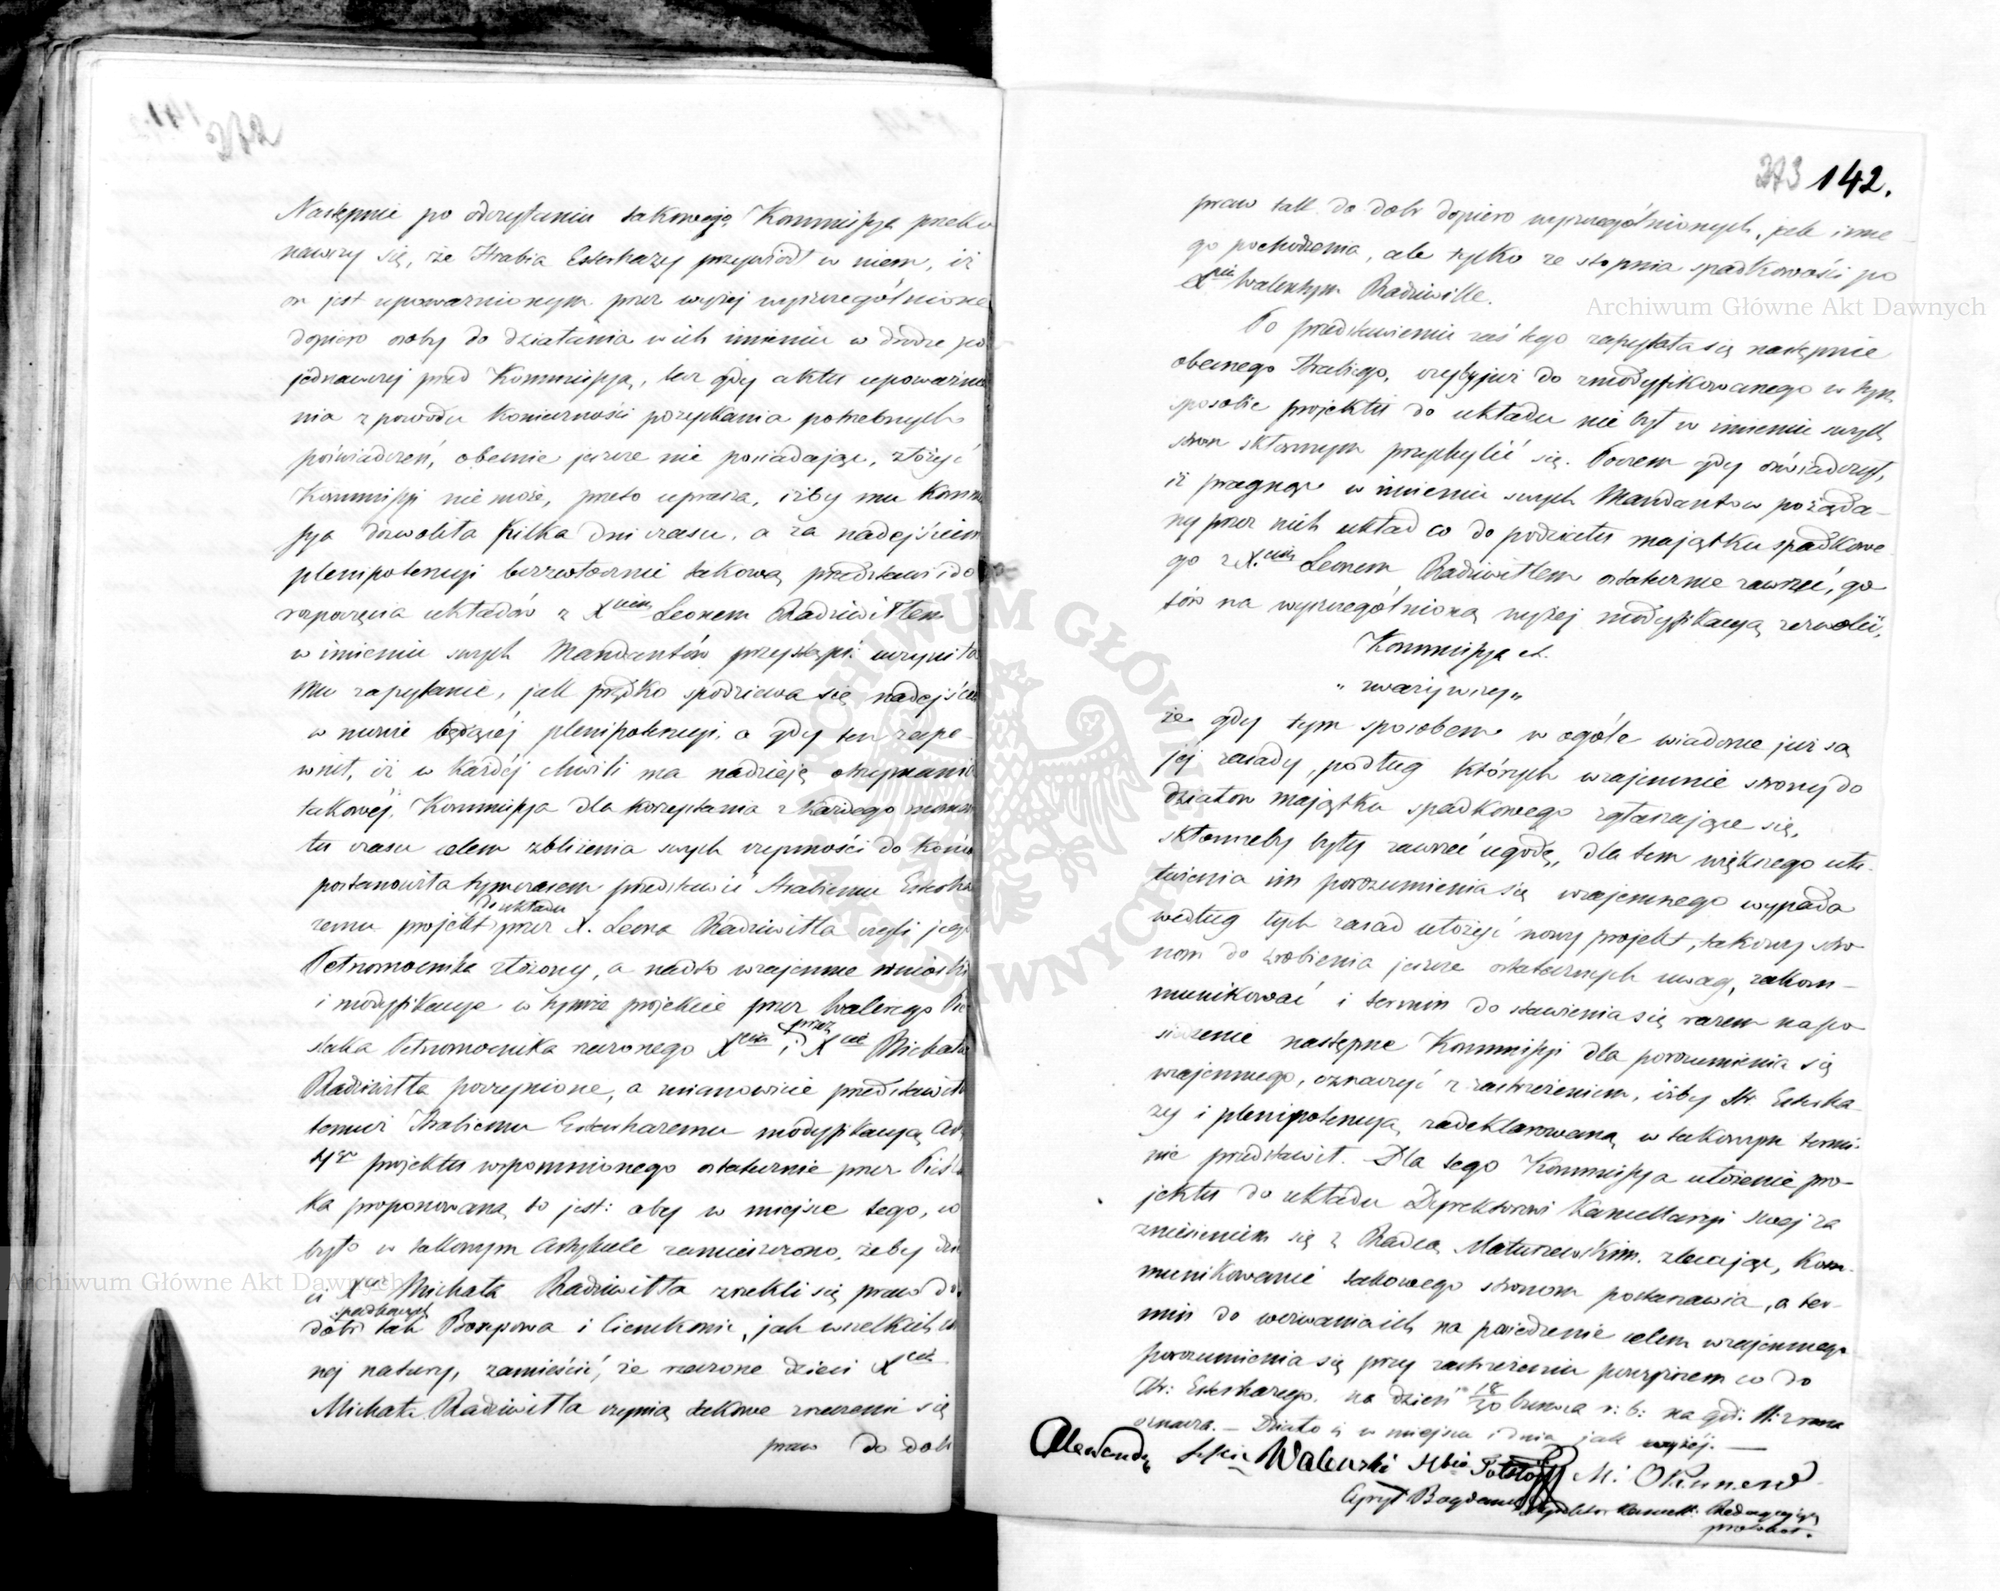 Następnie po odczytaniu takowego, Kommissya przeko
nawszy się, że Hrabia Esterhazy przywiódł w niem, iż
on jest upoważnionym przez wyżej wyszczególnione
dopiero osoby do działania w ich imieniu w drodze po
jednawczej przed Kommissyą, lecz gdy aktu upoważnie
nia z powodu konieczności pozyskania potrzebnych
poświadczeń, obecnie jeszcze nie posiadając, złożyć
Kommissyi nie może, przeto uprasza, iżby mu Kommis
sya dozwoliła kilka dni czasu, a za nadejściem
plenipotencyi bezzwłocznie takową przedstawi i do
rozpoczęcia układów z Xciem Leonem Radziwiłłem
w imieniu swych Mandantów przystąpi: uczyniła
Mu zapytanie, jak prędko spodziewa się nadejścia
w mowie będącej plenipotencyi, a gdy ten zape-
wnił, iż w każdej chwili ma nadzieję otrzymania
takowej, Kommissya dla korzystania z każdego momen
tu czasu celem zbliżenia swych czynności do końca
postanowiła tymczasem przedstawić Hrabiemu Esterha
zemu projekt do układu przez X. Leona Radziwiłła czyli jego
Pełnomocnika złożony, a nadto wzajemne wnioski
i modyfikacye w tymże projekcie przez Walerego Pie
ślaka Pełnomocnika rzeczonego Xcia i przez Xcia Michała
Radziwiłła poczynione, a mianowicie przedstawiła
temuż Hrabiemu Esterhazemu modyfikacyą Art.
4go projektu wspomnionego ostatecznie przez Pieśla
ka proponowaną to jest: aby w miejsce tego, co
było w takowym Artykule zamieszczono, żeby dzie
ci Xcia Michała Radziwiłła zrzekli się praw do
dóbr spadkowych tak i Ciemkowic, jak wszelkich in
nej natury, zamieścić, że rzeczone dzieci Xcia
Michała Radziwiłła czynią takowe zrzeczenie się
praw do dób
273 142.
praw tak do dóbr dopiero wyszczególnionych, jak inne-
go pochodzenia, ale tylko ze stopnia spadkowości po
Xciu Walentym Radziwille.
Po przedstawieniu zaś tego zapytała się następnie
obecnego Hrabiego, czyliby już do zmodyfikowanego w tym
sposobie projektu do układu nie był w imieniu swych
stron skłonnym przychylić się. Poczem gdy oświadczył,
iż pragnąc w imieniu swych Mandantów pożąda-
ny przez nich układ co do podziału majątku spadkowe-
go z X.ciem Leonem Radziwiłłem ostatecznie zawrzeć, go
tów na wyszczególnioną wyżej modyfikacyą zezwolić,
Kommissya etc.
„ zważywszy „
że gdy tym sposobem w ogóle wiadome już są
jej zasady, podług których wzajemnie strony do
działów majątku spadkowego zgłaszające się,
skłonneby były zawrzeć ugodę, dla tem większego uła-
twienia im porozumienia się wzajemnego wypada
według tych zasad ułożyć nowy projekt, takowy stro
nom do zrobienia jeszcze ostatecznych uwag, zakom-
munikować i termin do stawienia się razem na po
siedzenie następne Kommissyi dla porozumienia się
wzajemnego, oznaczyć z zastrzeżeniem, iżby Hr. Esterha-
zy i plenipotencyą zadeklarowaną w takowym termi-
nie przedstawił. Dla tego Kommissya ułożenie pro-
jektu do układu Dyrektorowi Kancellaryi swej za
zniesieniem się z Radcą Matuszewskim, zlecając, Kom-
munikowanie takowego stronom postanawia, a ter-
min do wezwania ich na posiedzenie celem wzajemnego
porozumienia się przy zastrzeżeniu powyższem co do
Hr: Esterhazego, na dzień 18/30 Czerwca r: b: na god: 11 z rana
oznacza. — Działo się w miejscu i dnia jak wyżej. —
Alexander Walewski M: Okunew
Cypryan Bogdan Dyrektor Kancell: Redagujący
protokół.